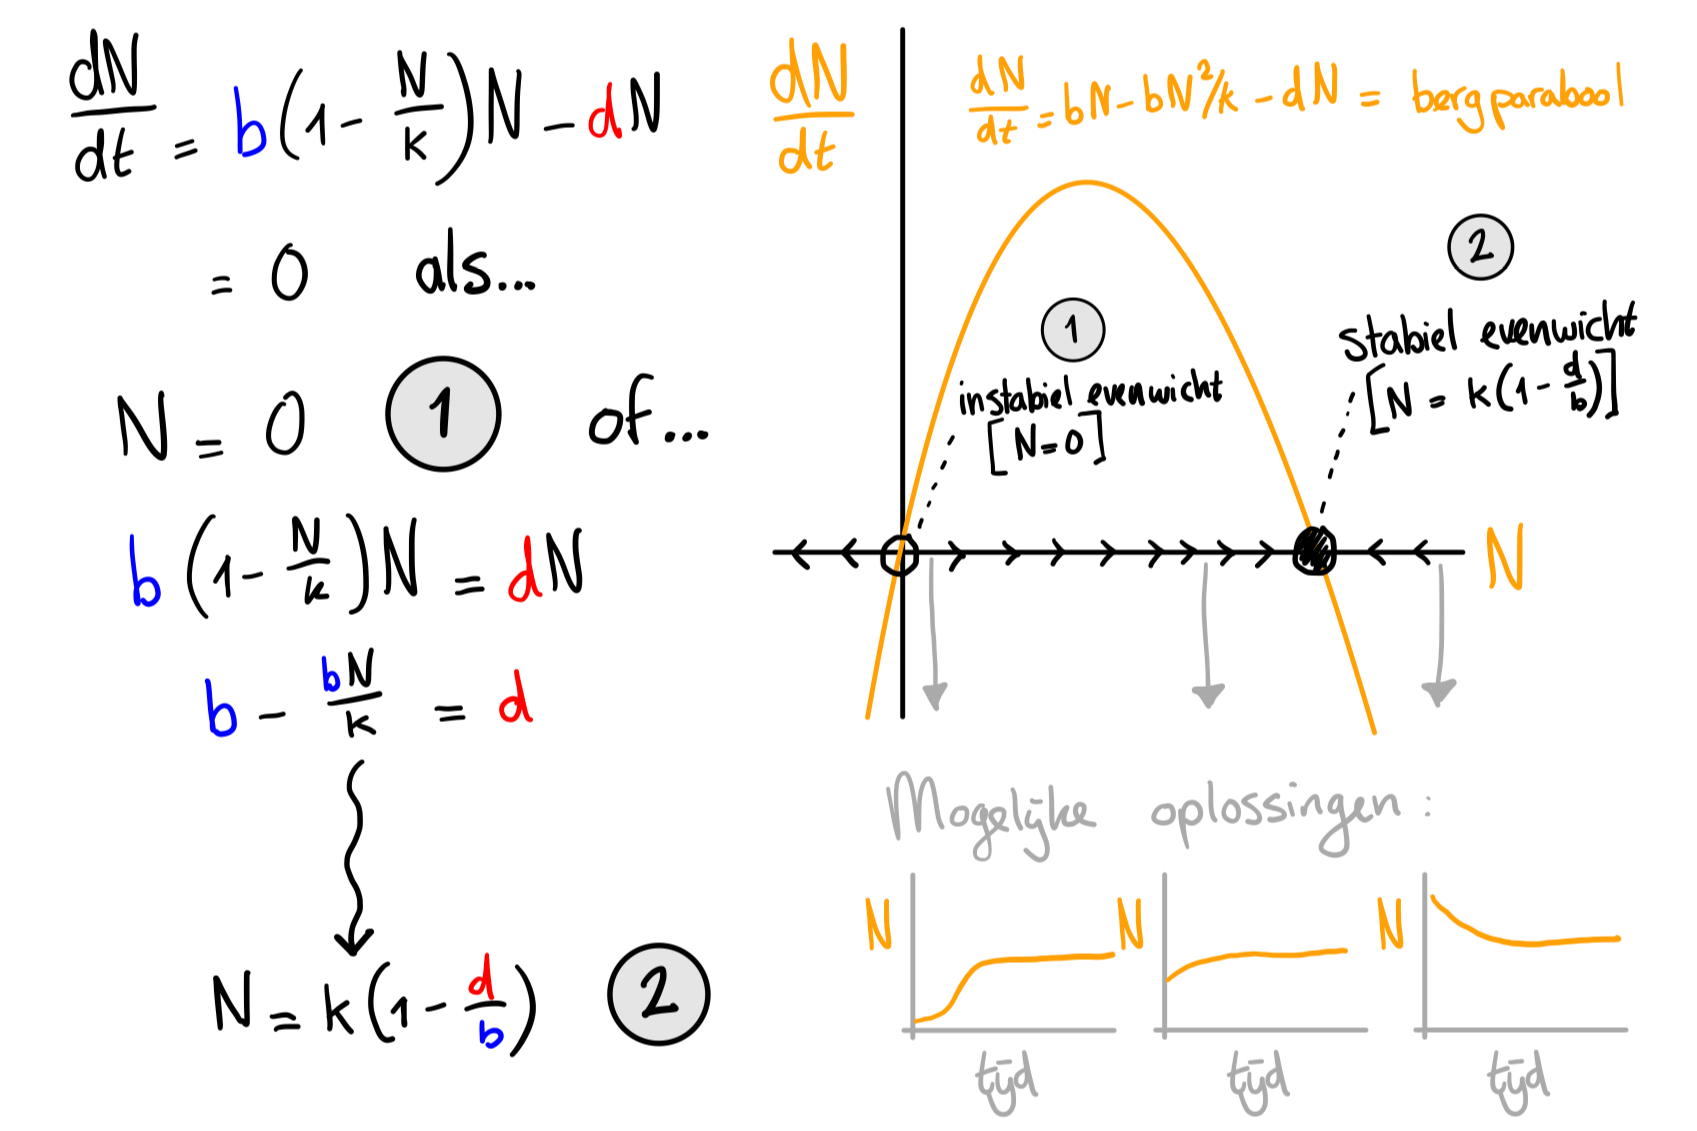 dN/dt = b(1 - N/k)N - dN
= 0 als...
N = 0 1 of...
b(1 - N/k)N = dN
b - bN/k = d
N = k(1 - d/b) 2
dN/dt
dN/dt = bN - bN²/k - dN = bergparabool
2
stabiel evenwicht
[N = k(1 - d/b)]
1
instabiel evenwicht
[N = 0]
N
Mogelijke oplossingen:
N
tijd
N
tijd
N
tijd